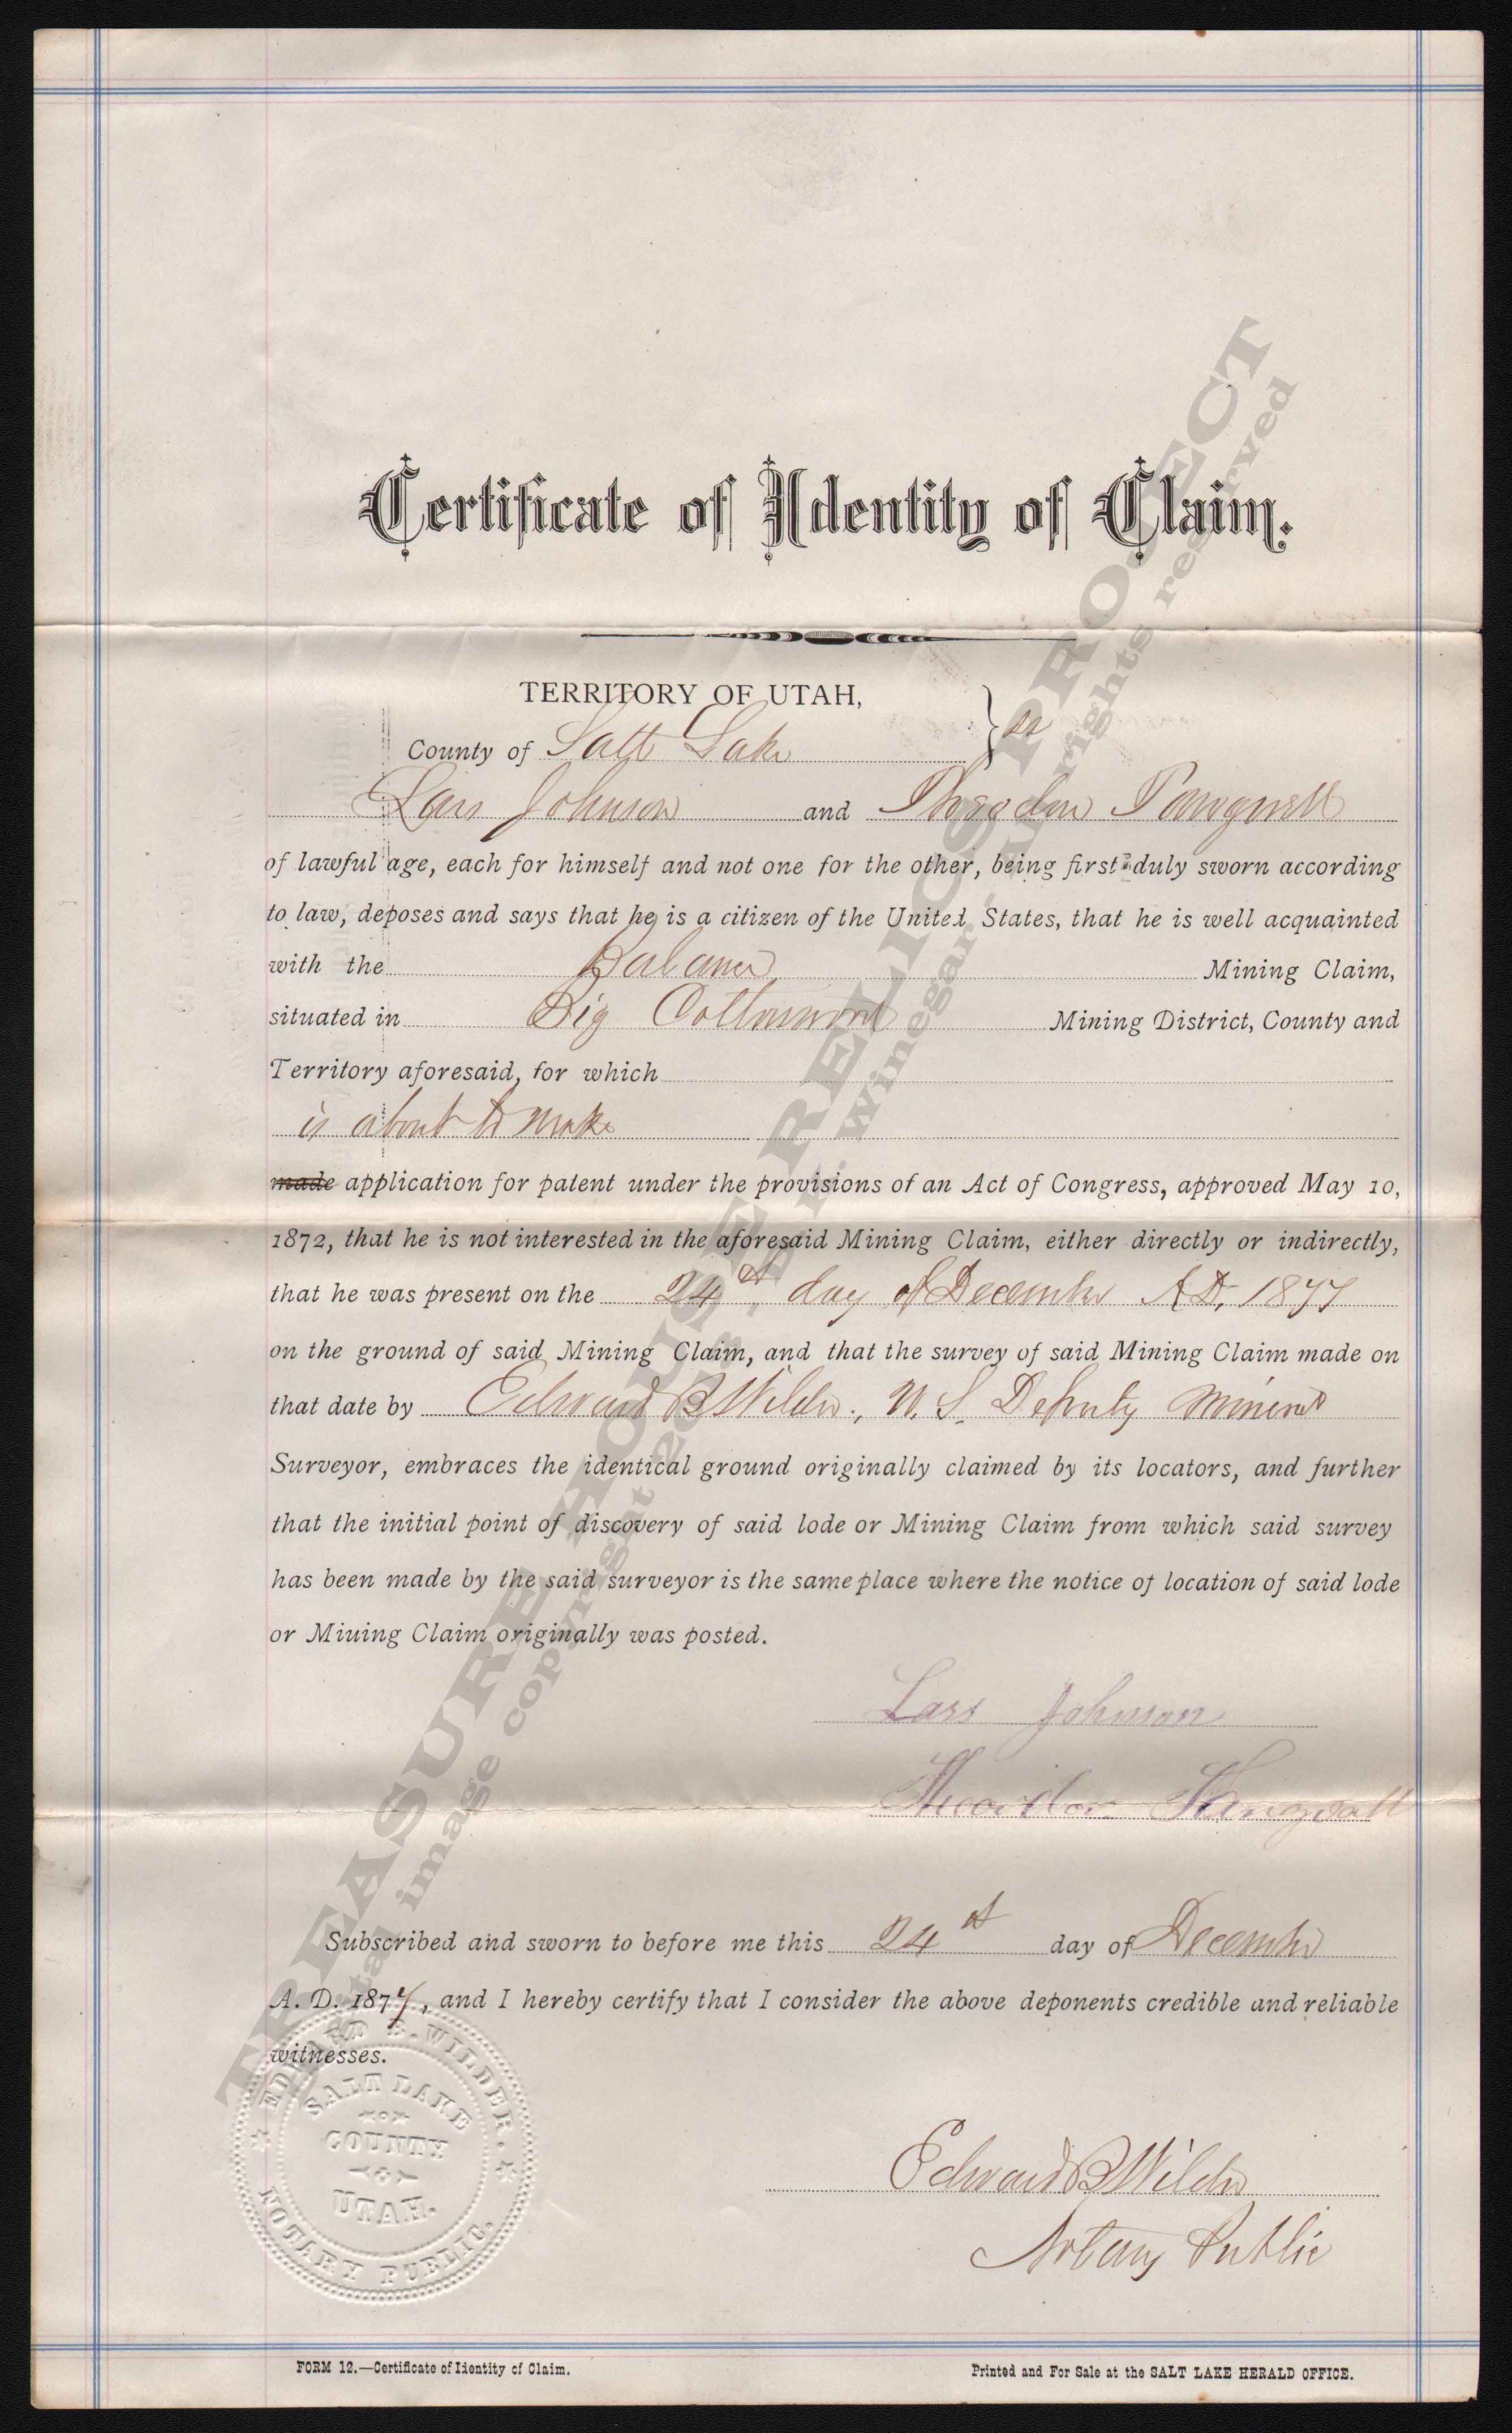 Certificate of Identity of Claim.
TERRITORY OF UTAH,
County of Salt Lake } ss
Lars Johnson and
of lawful age, each for himself and not one for the other, being first duly sworn according
to law, deposes and says that he is a citizen of the United States, that he is well acquainted
with the Balance Mining Claim,
situated in Big Cottonwood Mining District, County and
Territory aforesaid, for which
is about to make
made application for patent under the provisions of an Act of Congress, approved May 10,
1872, that he is not interested in the aforesaid Mining Claim, either directly or indirectly,
that he was present on the 24th day of December A.D. 1877
on the ground of said Mining Claim, and that the survey of said Mining Claim made on
that date by Edward B Wilder, U. S. Deputy Mineral
Surveyor, embraces the identical ground originally claimed by its locators, and further
that the initial point of discovery of said lode or Mining Claim from which said survey
has been made by the said surveyor is the same place where the notice of location of said lode
or Miuing Claim originally was posted.
Lars Johnson
Subscribed and sworn to before me this 24th day of December
A. D. 1877, and I hereby certify that I consider the above deponents credible and reliable
witnesses.
EDWARD B. WILDER.
SALT LAKE
COUNTY
UTAH.
NOTARY PUBLIC.
Edward B Wilder
Notary Public
FORM 12.—Certificate of Identity of Claim.
Printed and For Sale at the SALT LAKE HERALD OFFICE.
TREASURE HOUSE RELICS PROJECT